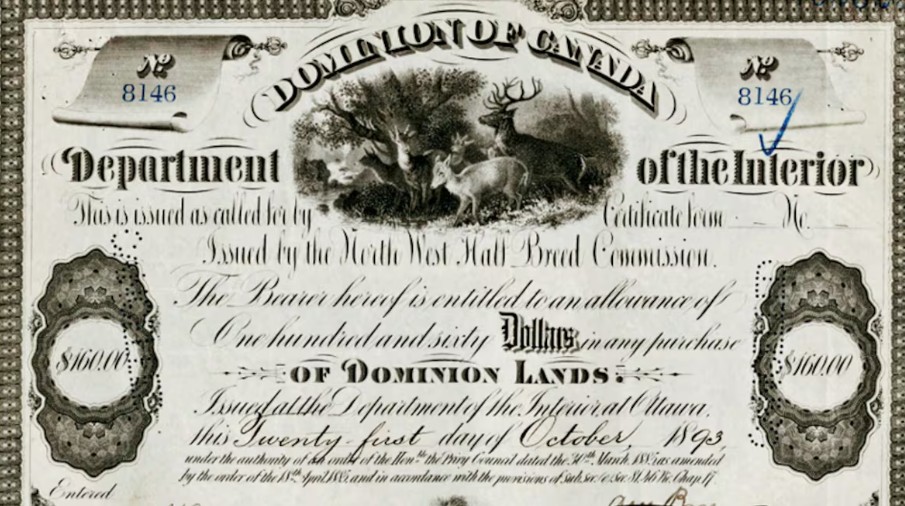 DOMINION OF CANADA
Nº 8146
Nº 8146
Department of the Interior
This is issued as called for by Certificate form No.
Issued by the North West Half Breed Commission.
The Bearer hereof is entitled to an allowance of
One hundred and sixty Dollars in any purchase
$160.00
$160.00
OF DOMINION LANDS:
Issued at the Department of the Interior at Ottawa,
this Twenty-first day of October, 1893
under the authority of an order of the Honble the Privy Council dated the 30th March 1885, as amended
by the order of the 18th April 1885, and in accordance with the provisions of Sub Sec. Sec. Vic. Chap 17.
Entered